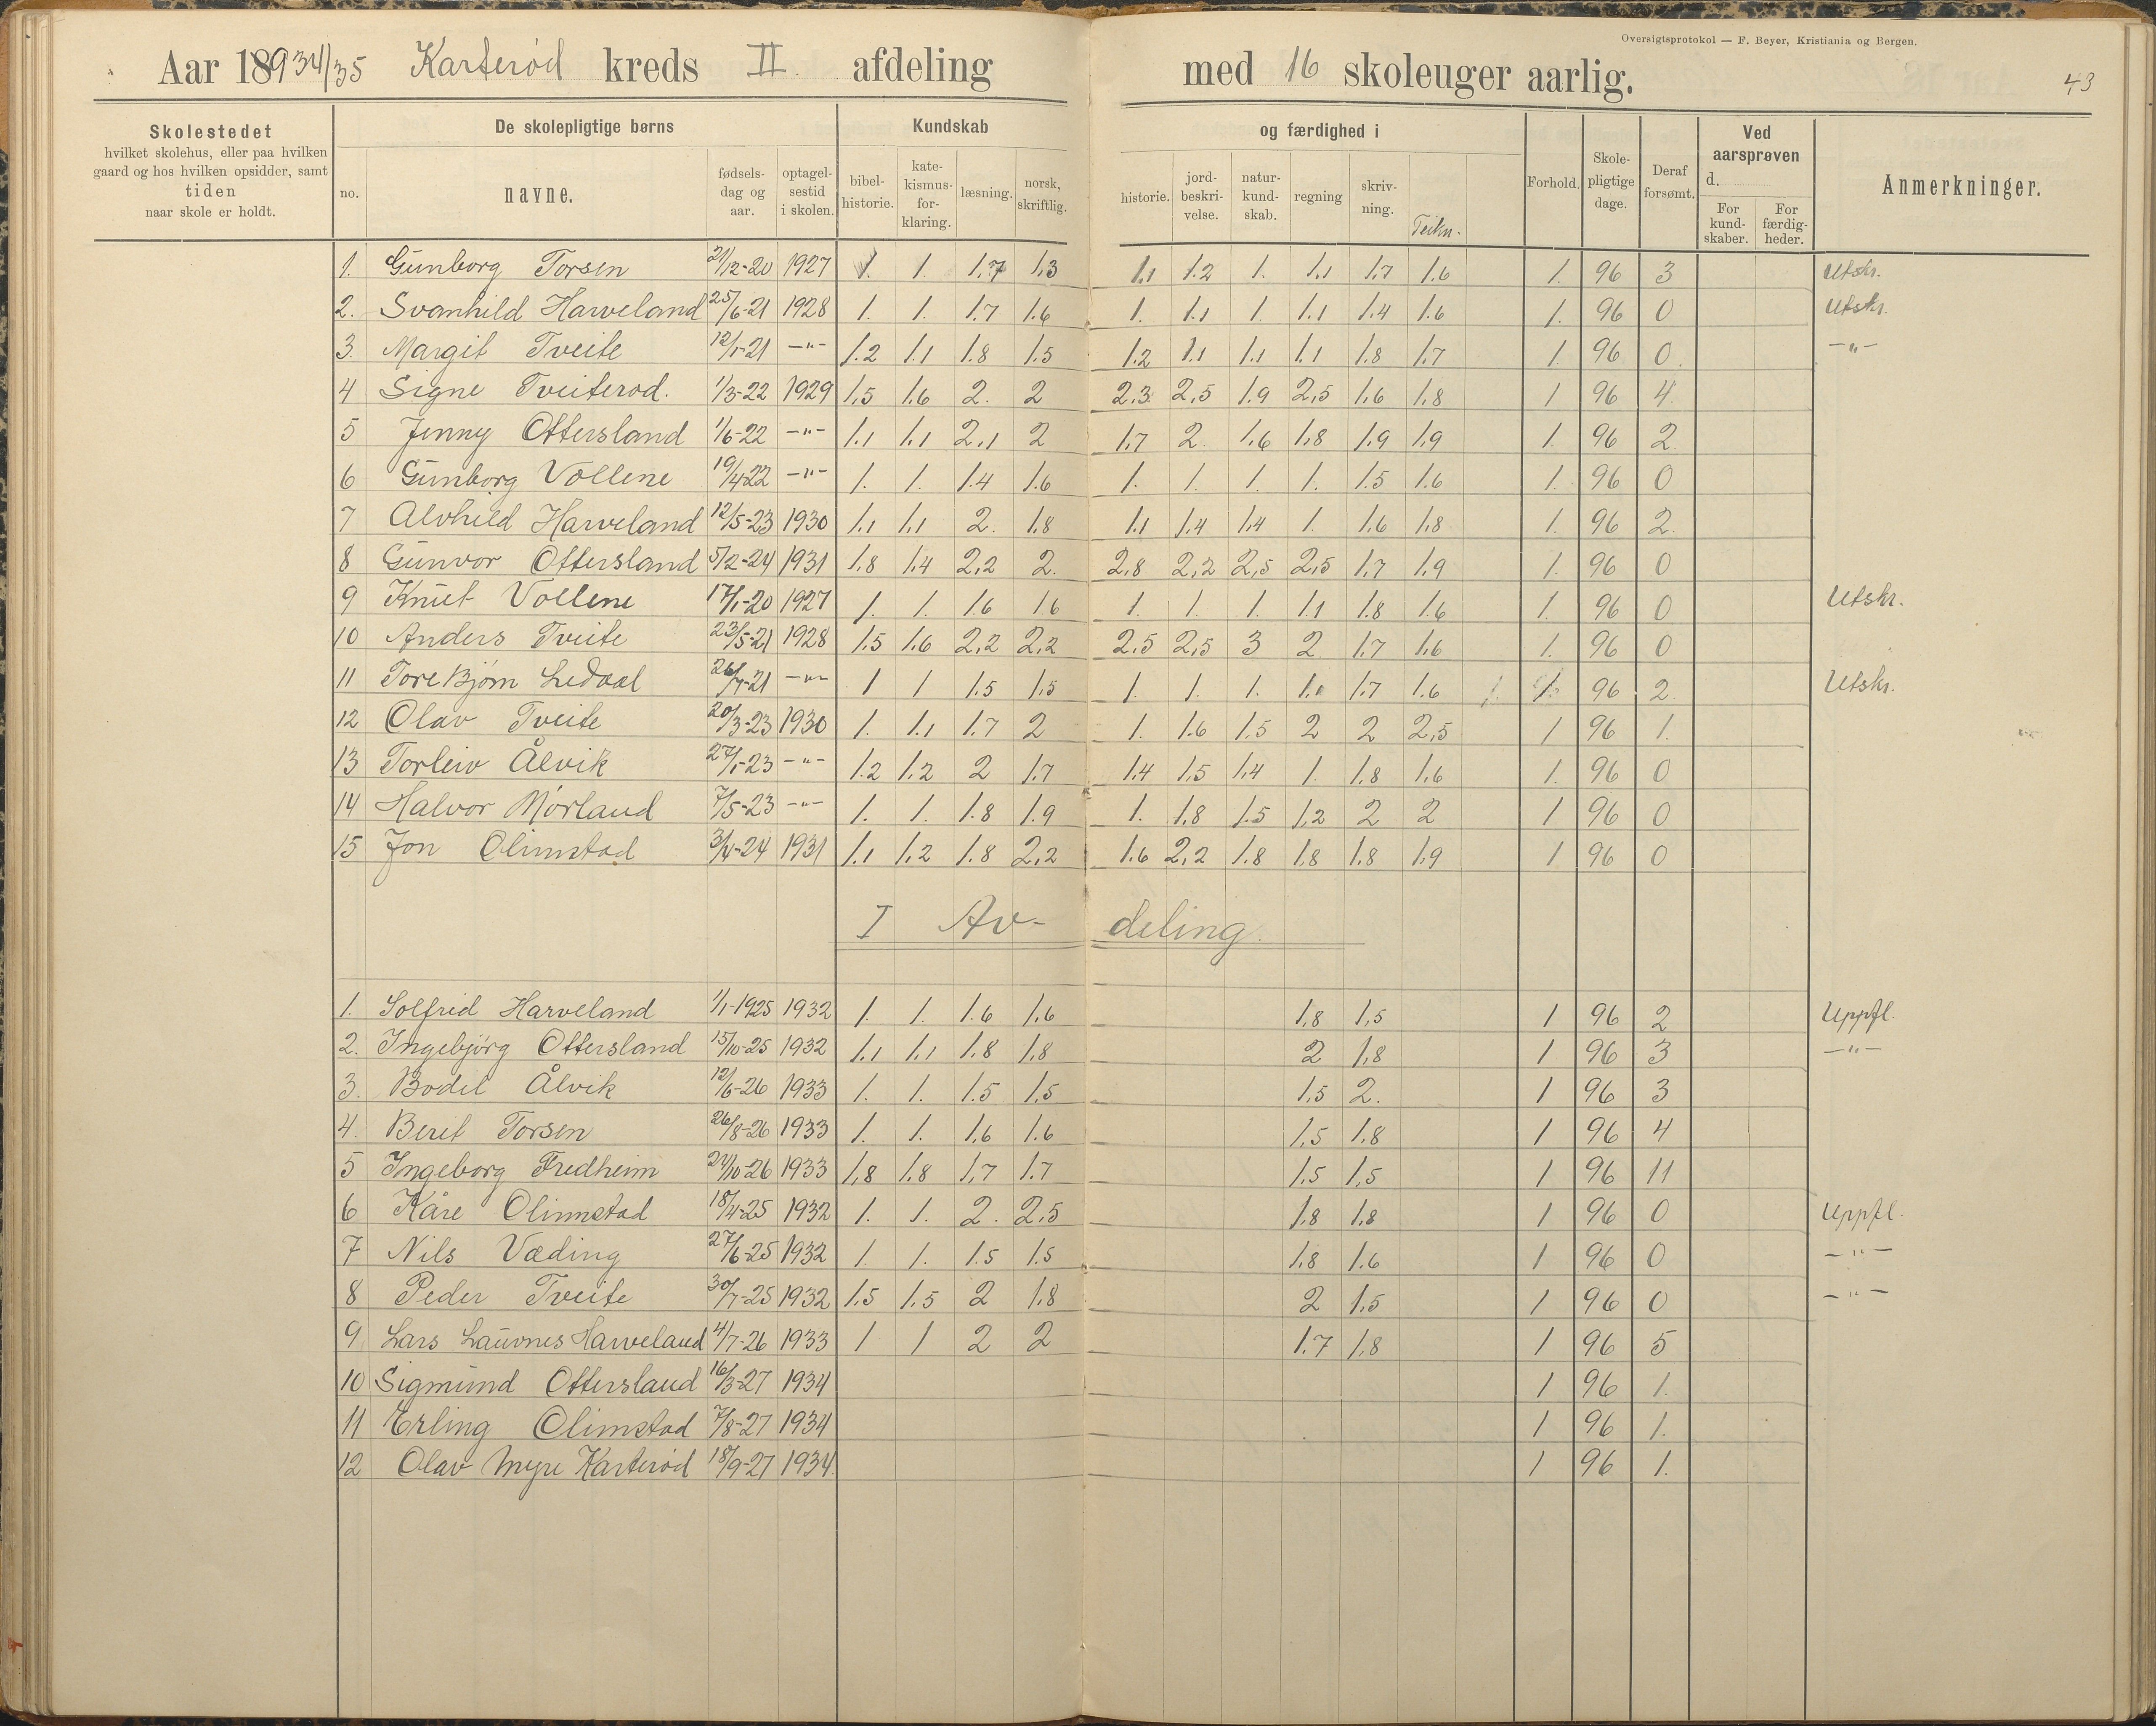 Oversigtsprotokol — F. Beyer, Kristiania og Bergen.
Aar 18934/35 Karterød kreds II. afdeling med 16 skoleuger aarlig.
43
Skolestedet
hvilket skolehus, eller paa hvilken
gaard og hos hvilken opsidder, samt
tiden
naar skole er holdt.
De skolepligtige børns
no.
navne.
fødsels-
dag og
aar.
optagel-
sestid
i skolen.
Kundskab
bibel-
historie.
kate-
kismus-
for-
klaring.
læsning.
norsk,
skriftlig.
og færdighed i
historie.
jord-
beskri-
velse.
natur-
kund-
skab.
regning
skriv-
ning.
Teikn.
Forhold.
Skole-
pligtige
dage.
Deraf
forsømt.
Ved
aarsprøven
d.
For
kund-
skaber.
For
færdig-
heder.
Anmerkninger.
1. Gunborg Torsen 21/12-20 1927 1. 1. 1.7 1,3 1.1 1.2 1. 1.1 1.7 1.6 1. 96 3 Utskr.
2. Svanhild Harveland 25/6-21 1928 1. 1. 1.7 1.6 1. 1.1 1. 1.1 1.4 1.6 1. 96 0 Utskr.
3. Margit Tveite 12/1-21 -"- 1.2 1.1 1.8 1.5 1.2 1.1 1.1 1.1 1.8 1.7 1. 96 0. -"-
4 Signe Tveiterød. 1/3-22 1929 1,5 1.6 2. 2 2.3 2,5 1.9 2,5 1.6 1.8 1 96 4.
5 Jenny Ottersland 1/6-22 -"- 1.1 1.1 2.1 2 1.7 2. 1.6 1.8 1.9 1.9 1. 96 2.
6 Gunborg Vollene 19/4-22 -"- 1. 1. 1.4 1.6 1. 1. 1. 1. 1.5 1.6 1. 96 0
7 Alvhild Harveland 12/5-23 1930 1.1 1.1 2. 1.8 1.1 1.4 1.4 1. 1.6 1.8 1. 96 2.
8 Gunvor Ottersland 5/2-24 1931 1.8 1.4 2,2 2. 2.8 2,2 2,5 2,5 1.7 1.9 1. 96 0
9 Knut Vollene 17/1-20 1927 1. 1. 1.6 1.6 1. 1. 1. 1.1 1.8 1.6 1. 96 0 Utskr.
10 Anders Tveite 23/5-21 1928 1.5 1.6 2,2 2,2 2.5 2,5 3 2 1.7 1.6 1. 96 0
11 Tore Bjørn Ledaal 26/7-21 -"- 1 1 1.5 1.5 1. 1. 1. 1.1 1.7 1.6 1. 96 2. Utskr.
12 Olav Tveite 20/3-23 1930 1. 1.1 1.7 2 1. 1.6 1.5 2 2 2,5 1 96 1.
13 Torleiv Ålvik 27/1-23 -"- 1.2 1.2 2 1.7 1.4 1.5 1.4 1. 1.8 1.6 1. 96 0
14 Halvor Mørland 7/5-23 -"- 1. 1. 1.8 1.9 1. 1.8 1.5 1.2 2 2 1 96 0
15 Jon Olimstad 3/4-24 1931 1.1 1.2 1.8 2,2 1.6 2,2 1.8 1.8 1.8 1.9 1. 96 0
I Av- deling.
1. Solfrid Harveland 1/1-1925 1932 1. 1. 1.6 1.6 1.8 1.5 1 96 2 Uppfl.
2. Ingebjørg Ottersland 15/10-25 1932 1.1 1.1 1.8 1.8 2 1.8 1 96 3 -"-
3. Bodil Ålvik 12/6-26 1933 1. 1. 1.5 1.5 1.5 2. 1 96 3
4. Berit Torsen 26/8-26 1933 1. 1. 1.6 1.6 1.5 1.8 1 96 4
5 Ingeborg Fredheim 24/10-26 1933 1,8 1.8 1,7 1.7 1.5 1,5 1 96 11
6 Kåre Olimstad 18/4-25 1932 1. 1. 2. 2.5 1.8 1.8 1 96 0 Uppfl.
7 Nils Væding 27/6-25 1932 1. 1. 1.5 1.5 1.8 1.6 1 96 0 -"-
8 Peder Tveite 30/7-25 1932 1.5 1.5 2 1.8 2 1.5 1 96 0 -"-
9 Lars Launes Harveland 4/7-26 1933 1 1 2 2 1.7 1.8 1 96 5
10 Sigmund Ottersland 16/3-27 1934 1 96 1.
11 Erling Olimstad 7/8-27 1934 1 96 1.
12 Olav Myre Karterød 18/9-27 1934. 1 96 1.